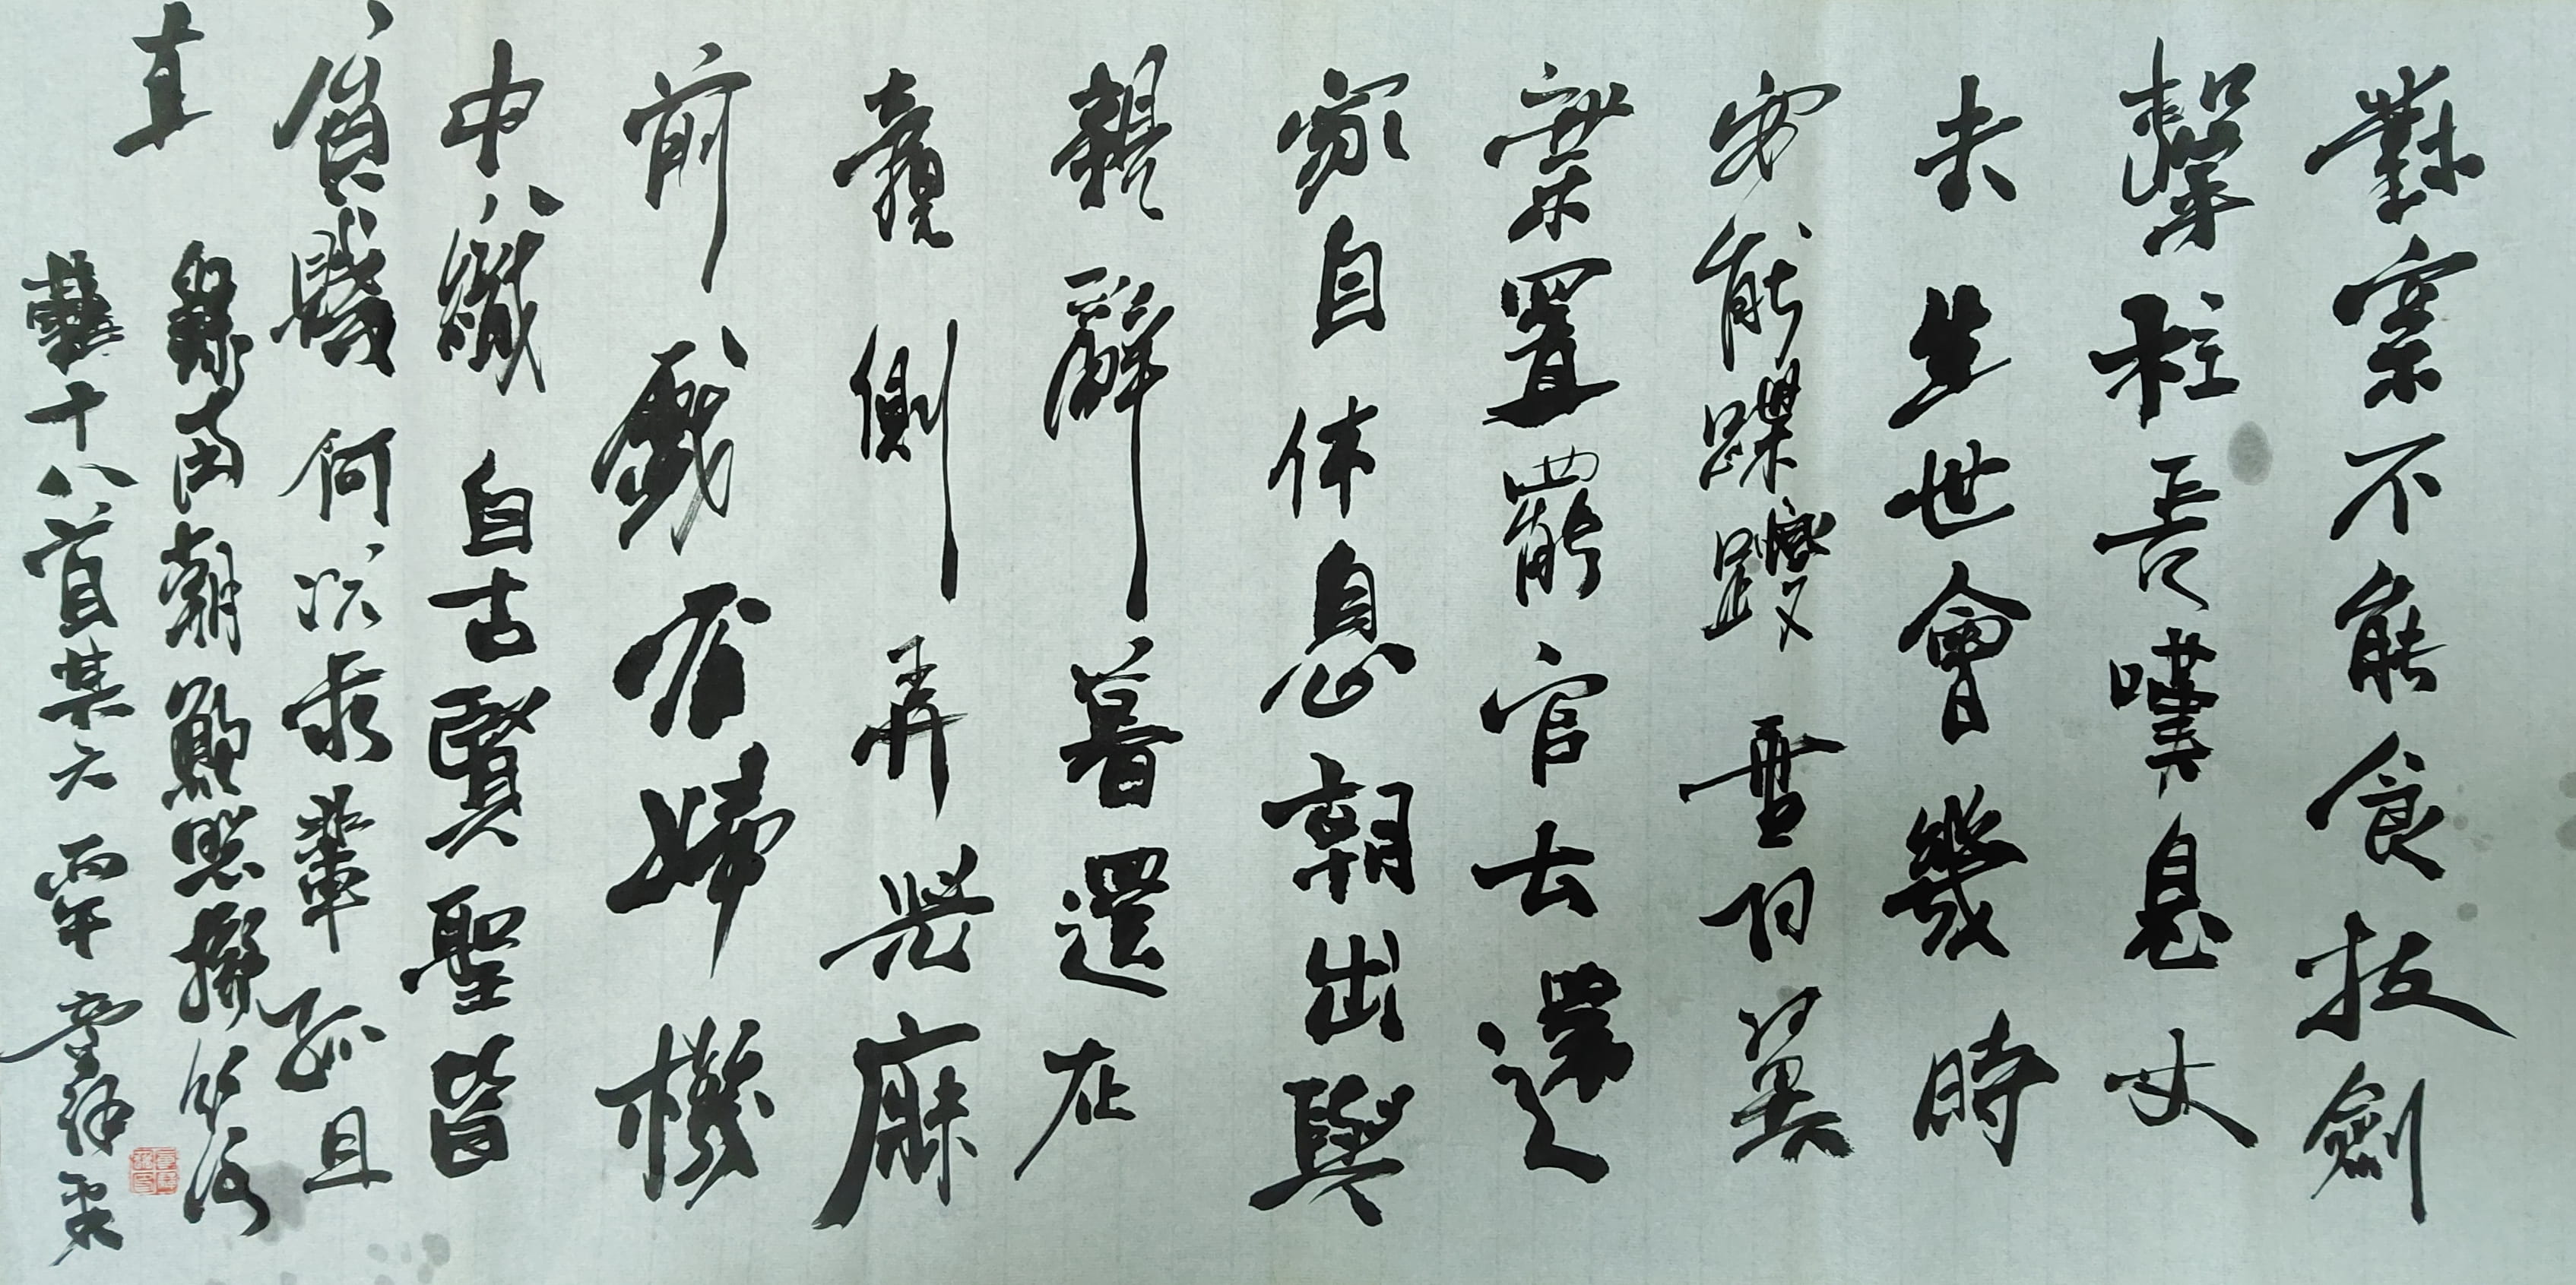 對案不能食拔劍
擊柱長嘆息丈
夫生世會幾時
安能蹀躞垂羽翼
棄置罷官去還
家自休息朝出與
親辭暮還在
親側弄兒床
前戲看婦機
中織自古賢聖皆
貧賤何況我輩孤且
直
錄南朝鮑照擬行路
難十八首其六 丙午